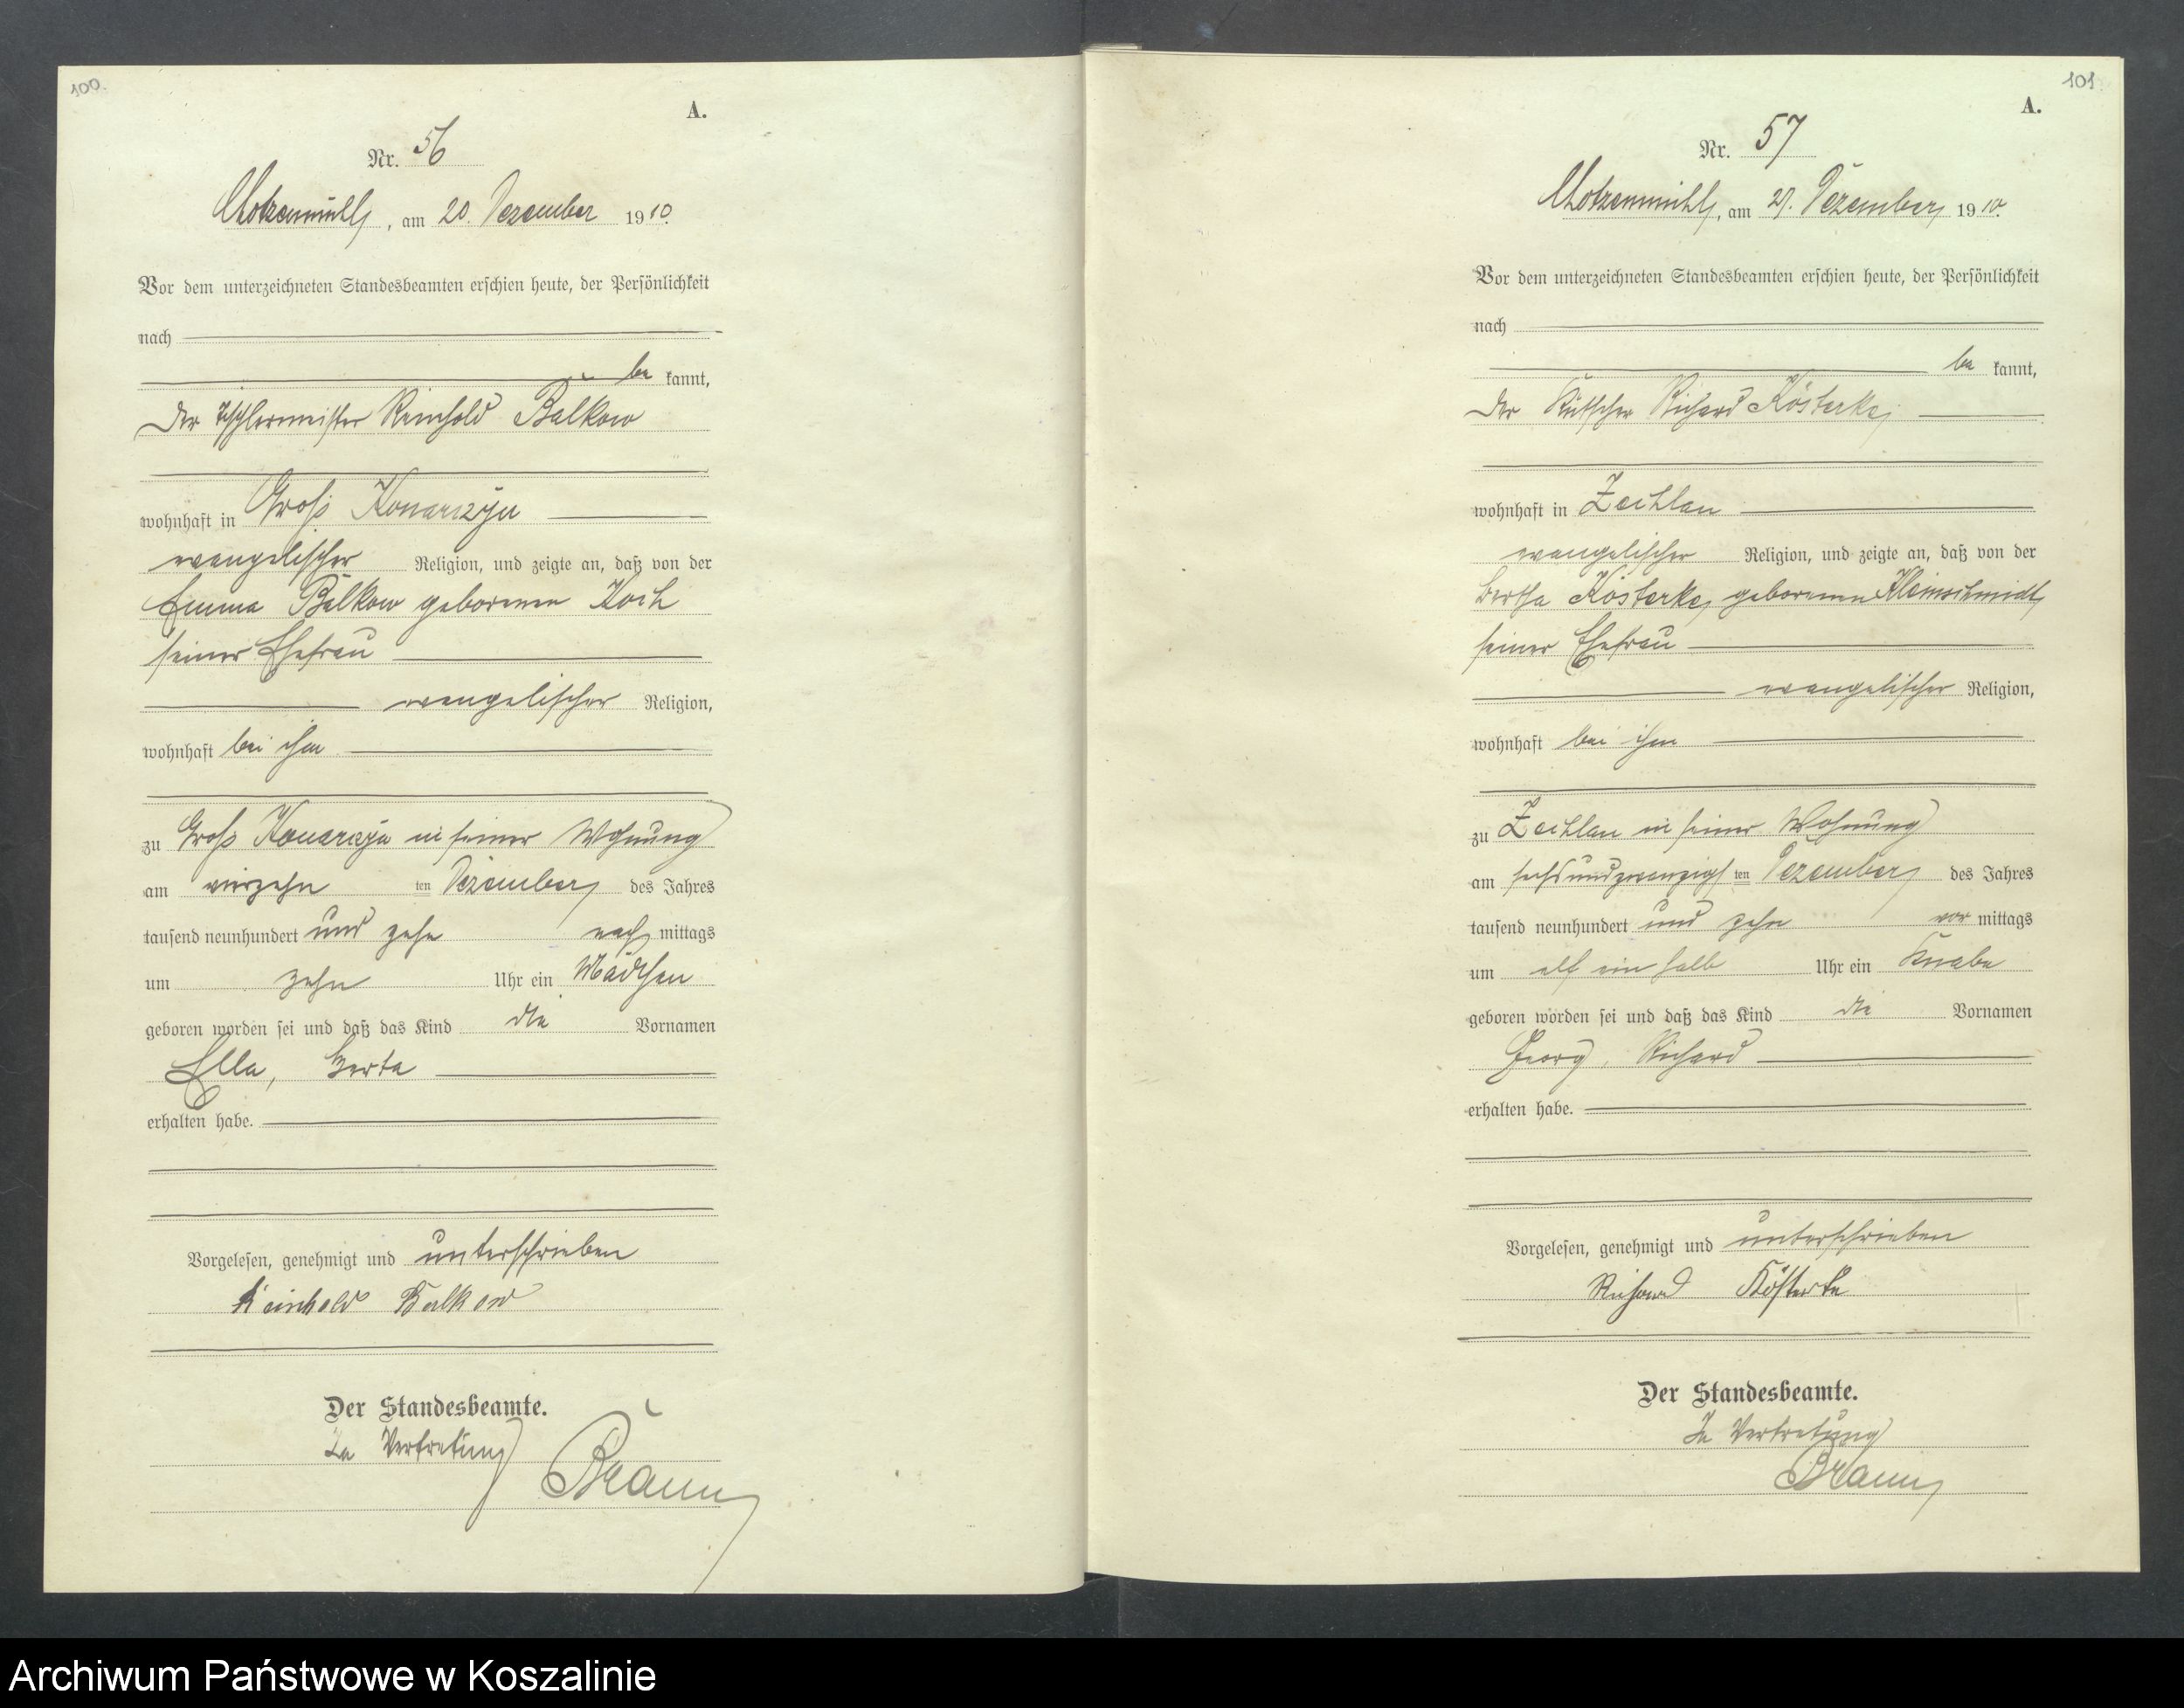 100.
A.
Nr. 56
Chotzenmühl, am 20. Dezember 1910.
Vor dem unterzeichneten Standesbeamten erschien heute, der Persönlichkeit
nach
be kannt,
der Tischlermeister Reinhold Balkow
wohnhaft in Groß Konarczyn
evangelischer Religion, und zeigte an, daß von der
Emma Balkow geborenen Koch
seiner Ehefrau
evangelischer Religion,
wohnhaft bei ihm
zu Groß Konarczyn in seiner Wohnung
am vierzehn ten Dezember des Jahres
tausend neunhundert und zehn nach mittags
um zehn Uhr ein Mädchen
geboren worden sei und daß das Kind die Vornamen
Ella, Herta
erhalten habe.
Vorgelesen, genehmigt und unterschrieben
Reinhold Balkow
Der Standesbeamte.
In Vertretung
Braun
101.
A.
Nr. 57
Chotzenmühl, am 27. Dezember 1910.
Vor dem unterzeichneten Standesbeamten erschien heute, der Persönlichkeit
nach
be kannt,
der Kutscher Richard Kösterke,
wohnhaft in Zechlau
evangelischer Religion, und zeigte an, daß von der
Bertha Kösterke, geborenen Kleinschmidt,
seiner Ehefrau
evangelischer Religion,
wohnhaft bei ihm
zu Zechlau in seiner Wohnung
am sechsundzwanzigs ten Dezember des Jahres
tausend neunhundert und zehn vor mittags
um elf ein halb Uhr ein Knabe
geboren worden sei und daß das Kind die Vornamen
Georg, Richard
erhalten habe.
Vorgelesen, genehmigt und unterschrieben
Richard Kösterke
Der Standesbeamte.
In Vertretung
Braun
Archiwum Państwowe w Koszalinie